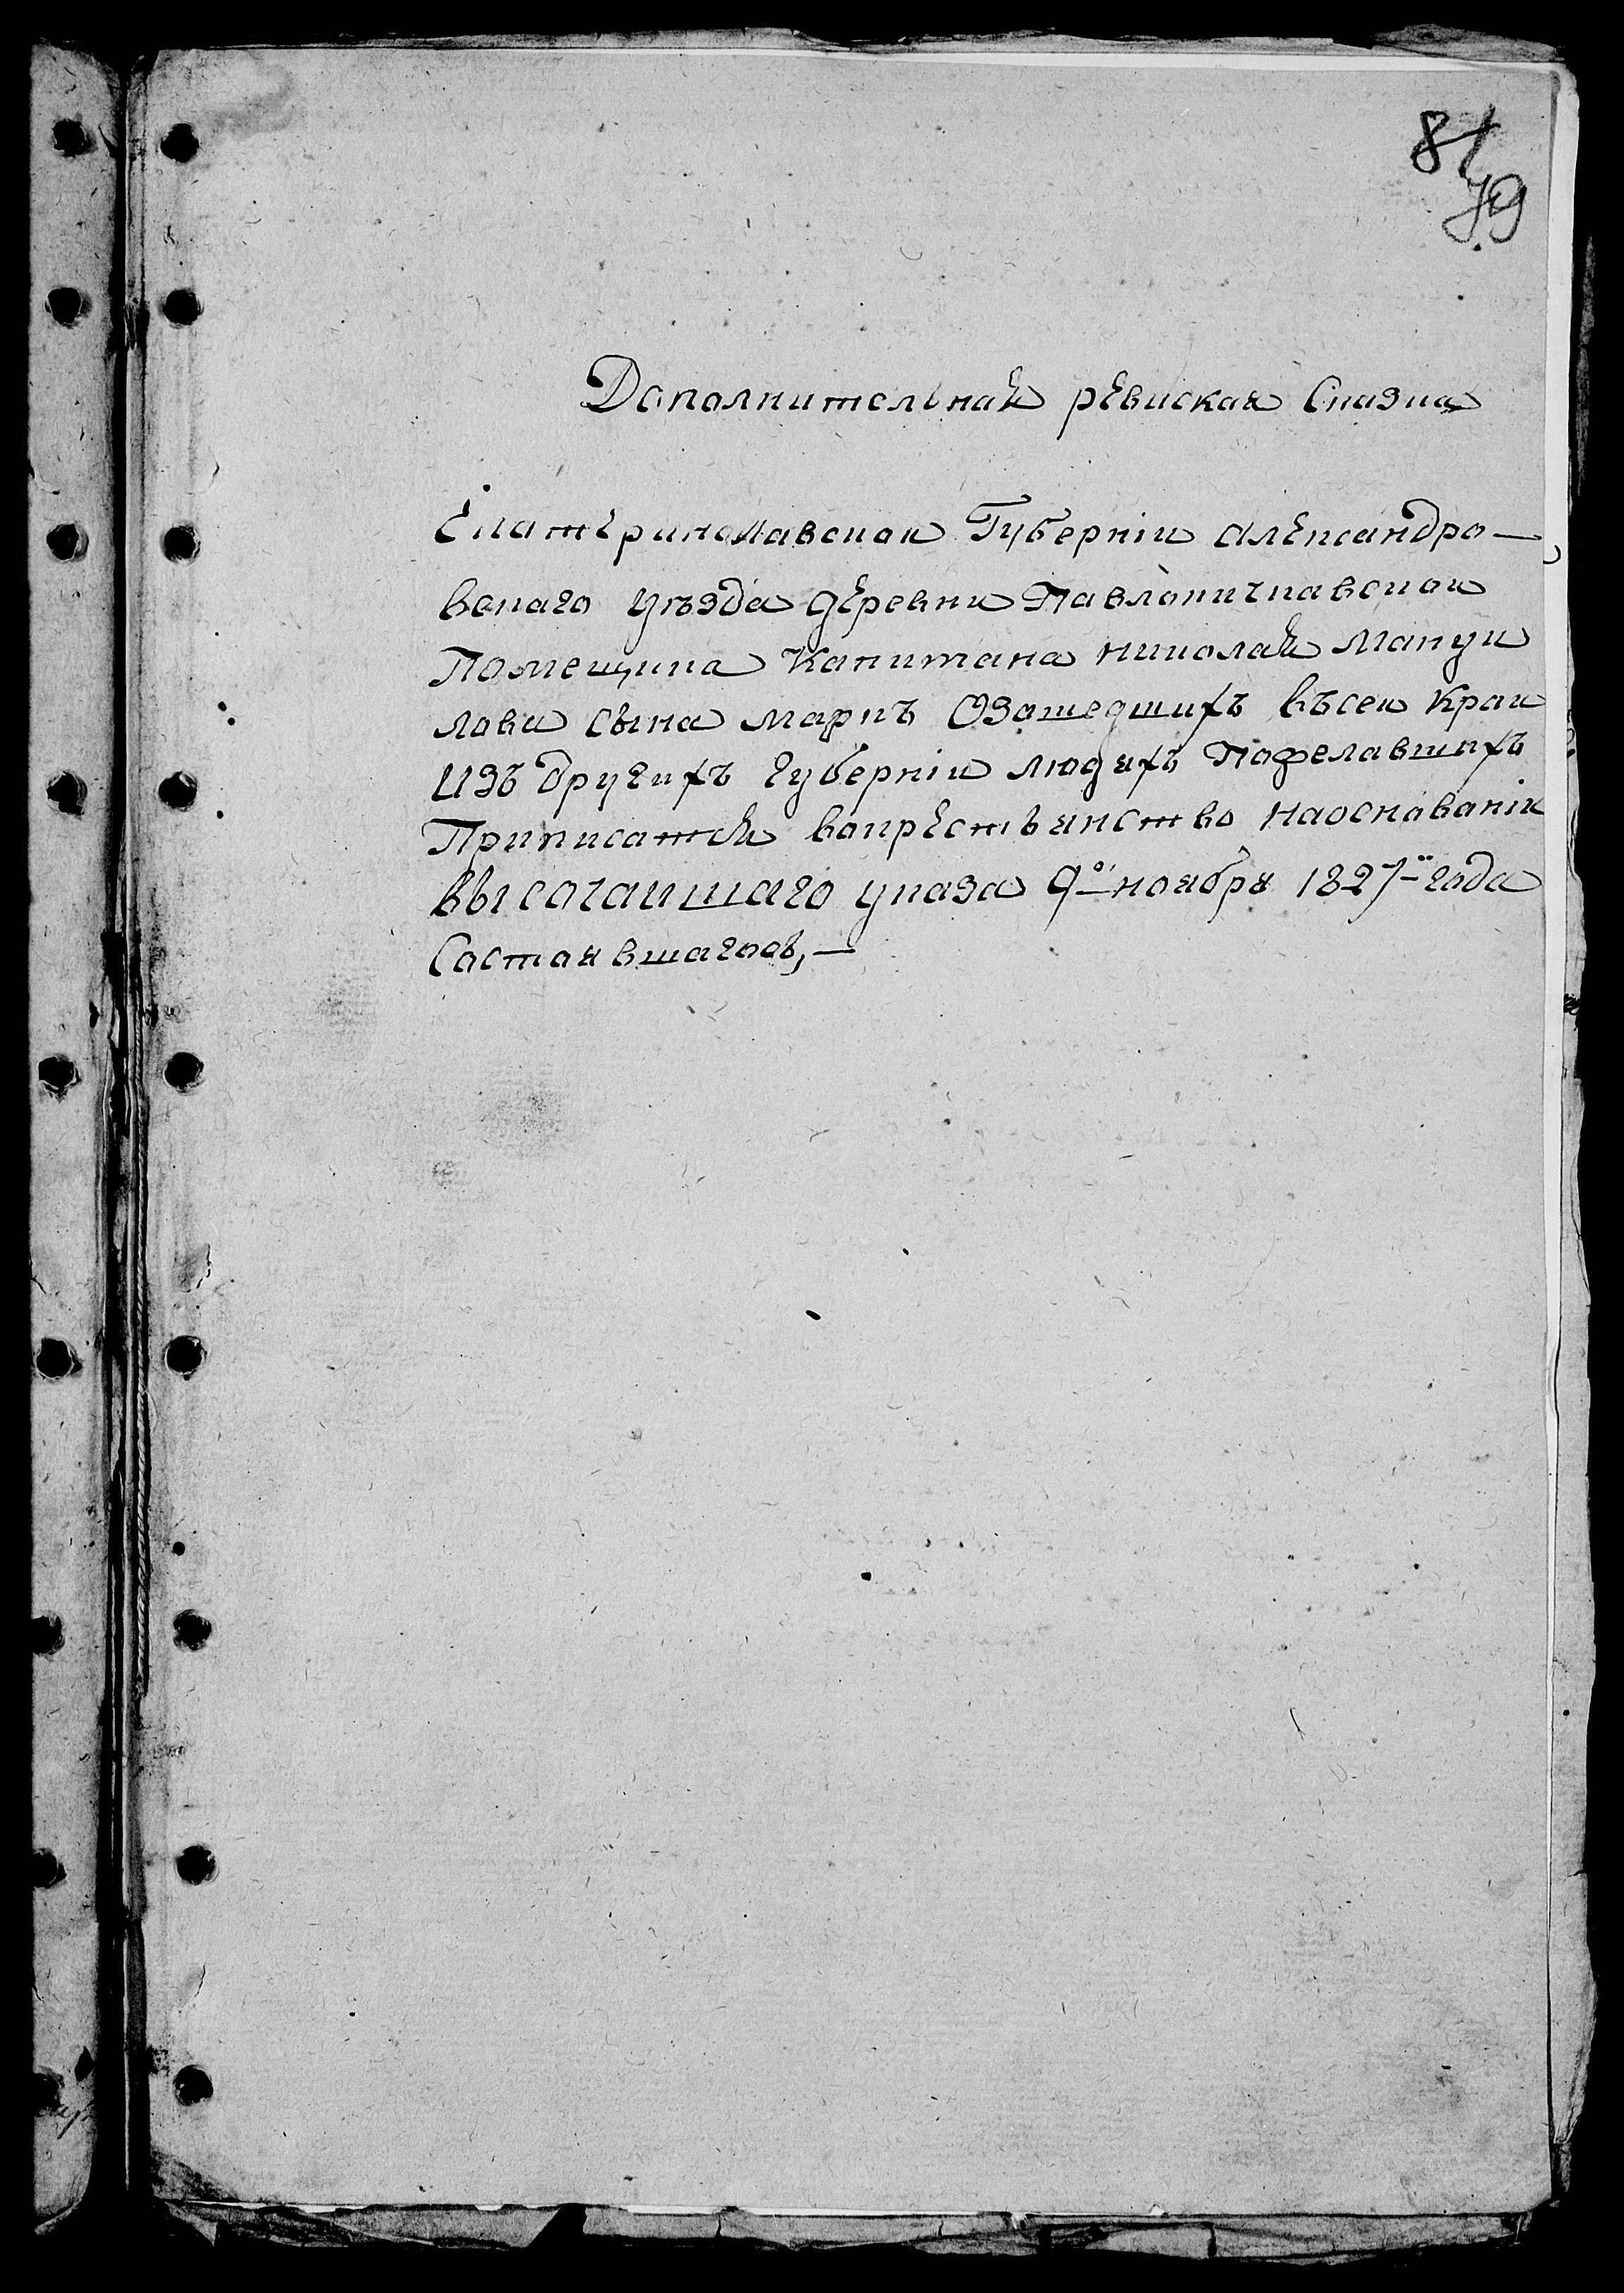 81
79
Дополнительная ревиская Сказка
Екатеринославскои Губерніи Александро—
вскаго уѣзда деревни Павлокичкавскои
Помещика Капитана николая Мануи
лова сына Маркъ Озашедшихъ въсеи краи
Изъ другихъ губерніи людяхъ Пожелавшихъ
Приписатся вокрестьянство наоснованіи
высочаишаго указа 9го ноября 1827 года
Састаявшагось,—